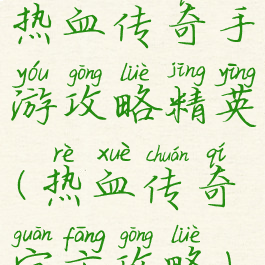 热血传奇手
yóu gōng lüè jīng yīng
游攻略精英
rè xuè chuán qí
(热血传奇
guān fāng gōng lüè
官方攻略)